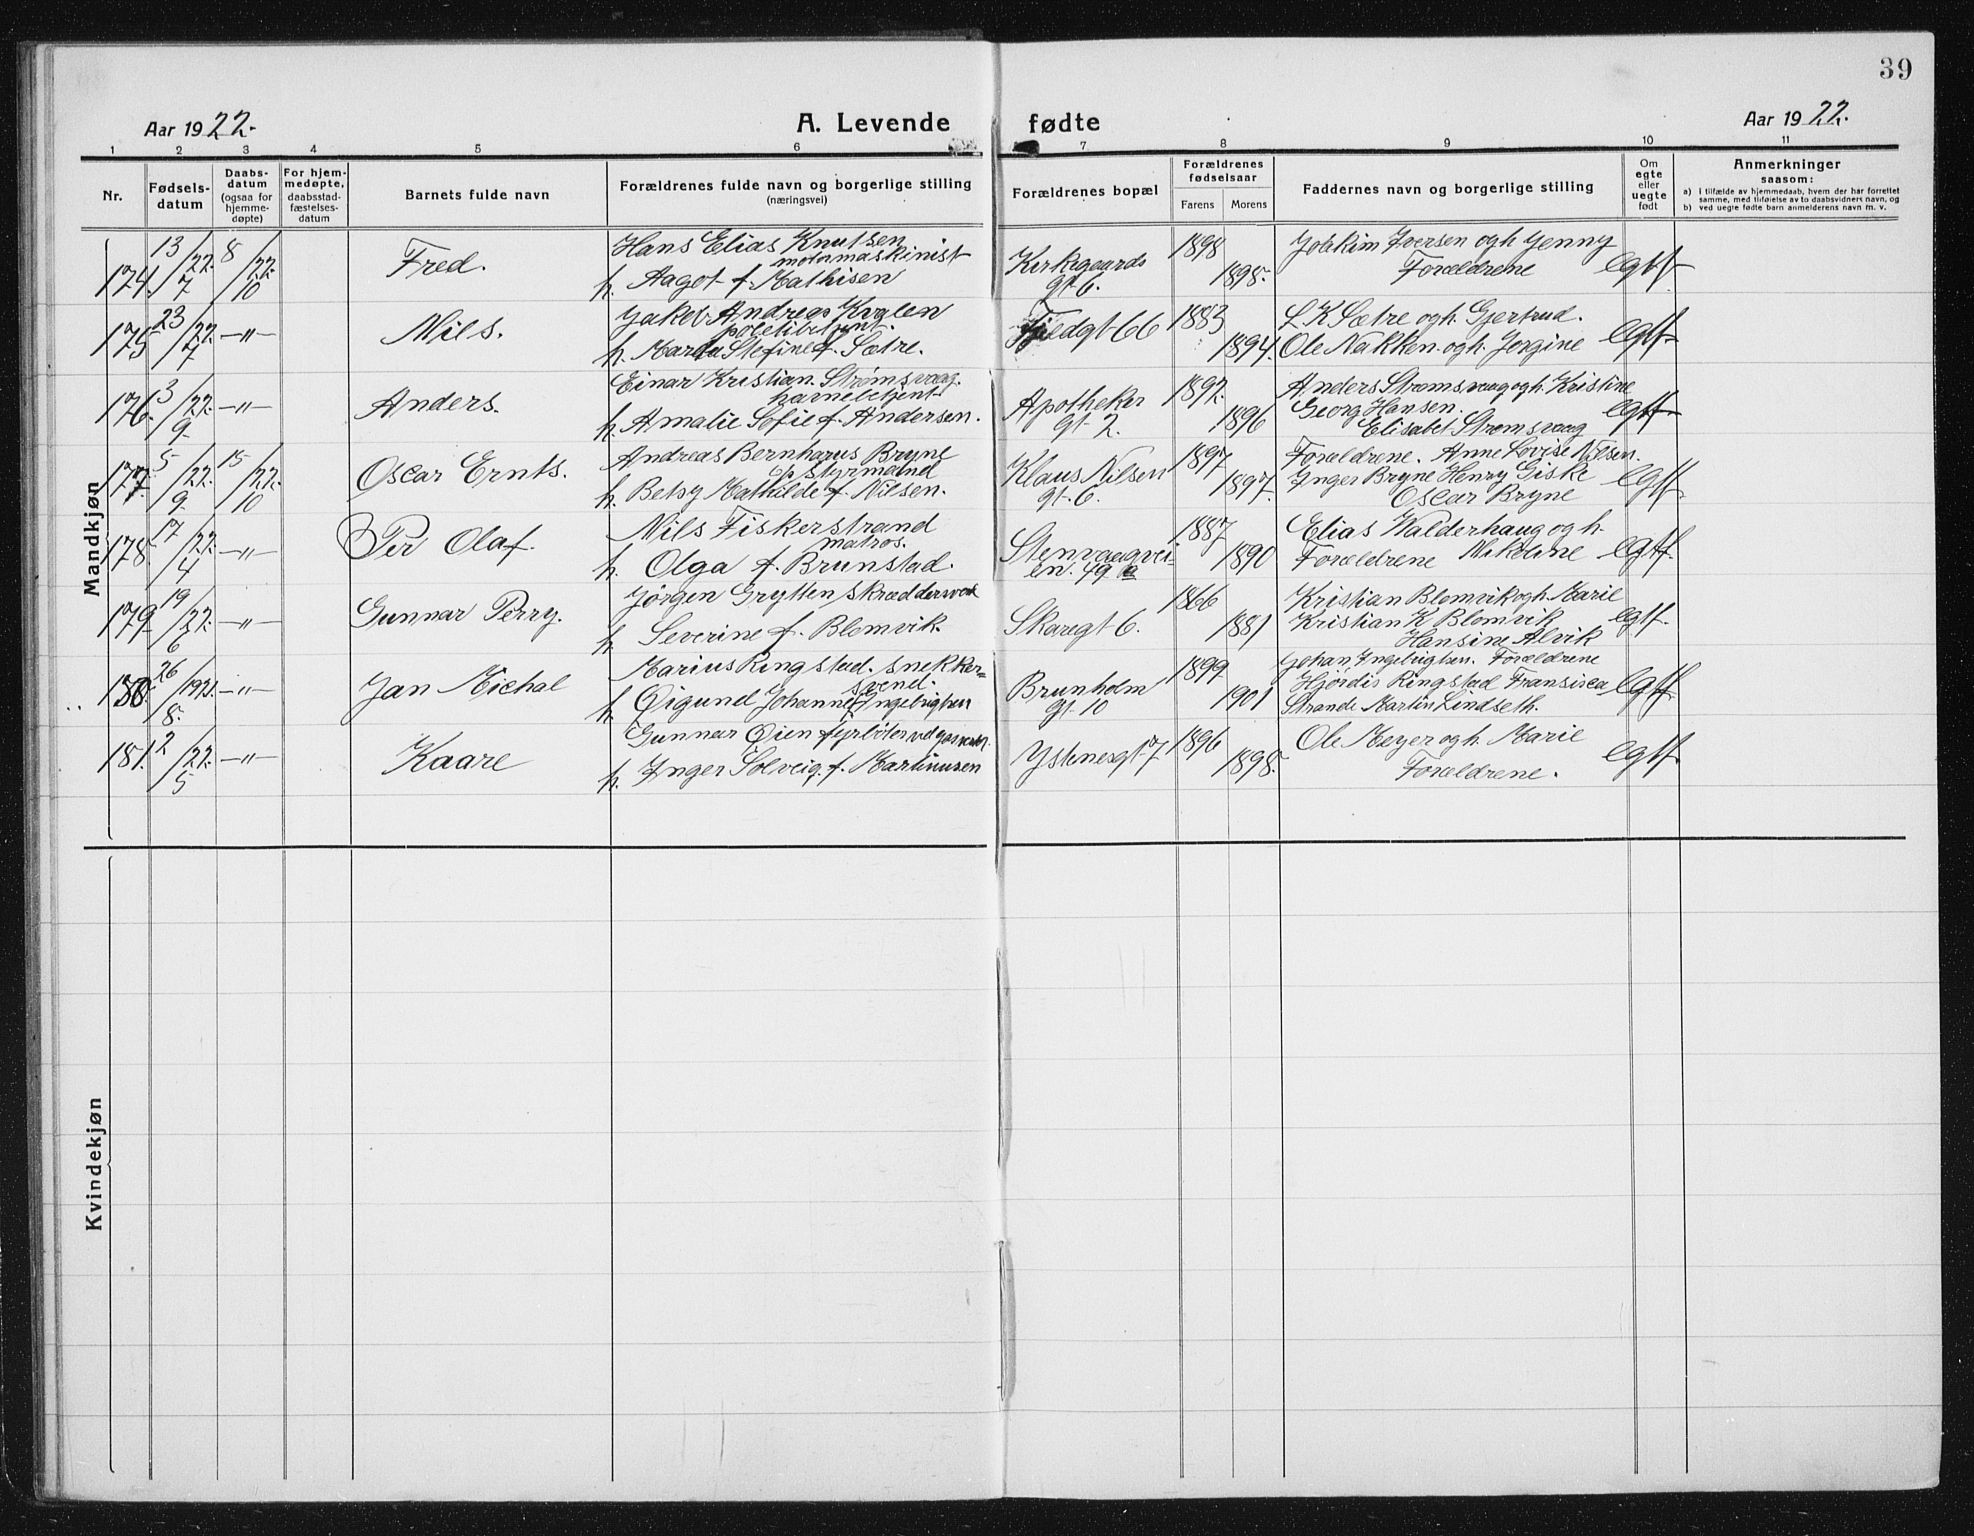 39
Aar 1922.
A. Levende fødte
Aar 1922.
1 2 3 4 5 6 7 8 9 10 11
Nr.
Fødsels-
datum
Daabs-
datum
(ogsaa for
hjemme-
døpte)
For hjem-
medøpte,
daabsstad-
fæstelses-
datum
Barnets fulde navn
Forældrenes fulde navn og borgerlige stilling
(næringsvei)
Forældrenes bopæl
Forældrenes
fødselsaar
Farens Morens
Faddernes navn og borgerlige stilling
Om
egte
eller
uegte
født
Anmerkninger
saasom:
a) i tilfælde av hjemmedaab, hvem der har forrettet
samme, med tilføielse av to daabsvidners navn, og
b) ved uegte fødte barn anmelderens navn m. v.
Mandkjøn
174. 13/7 22. 8/10 22. Fred.
Hans Elias Knutsen
motormaskinist
h. Aagot f. Mathisen
Kirkegaards
gt 6.
1898
1898.
Joakim Iversen og h Jenny
Forældrene
egtf
175 23/7 22. -"- Nils.
Jakob Andreas Kvalen
politibetjent.
h. Marta Stefine f. Sætre.
Fjeldgt 66
1883
1894.
L K Sætre og h. Gjertrud.
Ole Nakken og h. Jorgine
egtf
176. 3/9. 22. -"- Anders.
Einar Kristian Strømsvaag.
havnebetjent
h. Amalie Sofie f. Andersen.
Apotheker
gt 2.
1892.
1896
Anders Strømsvaag og h. Kristine
Georg Hansen.
Elisabet Strømsvaag
egtf
177. 5/9 22. 15/10 22. Oscar Ernts.
Andreas Bernharus Bryne
styrmand
h. Betsy Mathilde f. Nilsen.
Klaus Nilsen
gt 6.
1897
1897.
Forældrene. Anne Lovise Nilsen.
Inger Bryne Henry Giske
Oscar Bryne
egtf
178. 17/4 22. -"- Per Olaf.
Nils Fiskerstrand
matros.
h. Olga f. Brunstad.
Stenvaagvei-
en. 49 a
1887
1890
Elias Walderhaug og h.
Forældrene Nikoline
egtf
179 19/6 22. -"- Gunnar Perry.
Jørgen Grytten skræddersvend
h. Severine f. Blomvik.
Skaregt 6.
1866
1881
Kristian Blomvik og h. Marie
Kristian K Blomvik
Hansine Alvik
egtf.
180. 26/8. 1921. -"- Jan Michal
Marius Ringstad. snekker-
svend.
h. Øigund Johanne f. Ingebrigtsen
Brunholm
gt 10
1899
1901
Johan Ingebrigtsen. Forældrene
Hjørdis Ringstad Fransisca
Strande Martin Lindseth.
egtf
181. 2/5 22. -"- Kaare
Gunnar Øien fyrbøter ved gasverket.
h. Inger Solveig f. Martinusen
Ystenesgt 7
1896
1898.
Ole Meyer og h. Marie
Forældrene.
egtf
Kvindekjøn